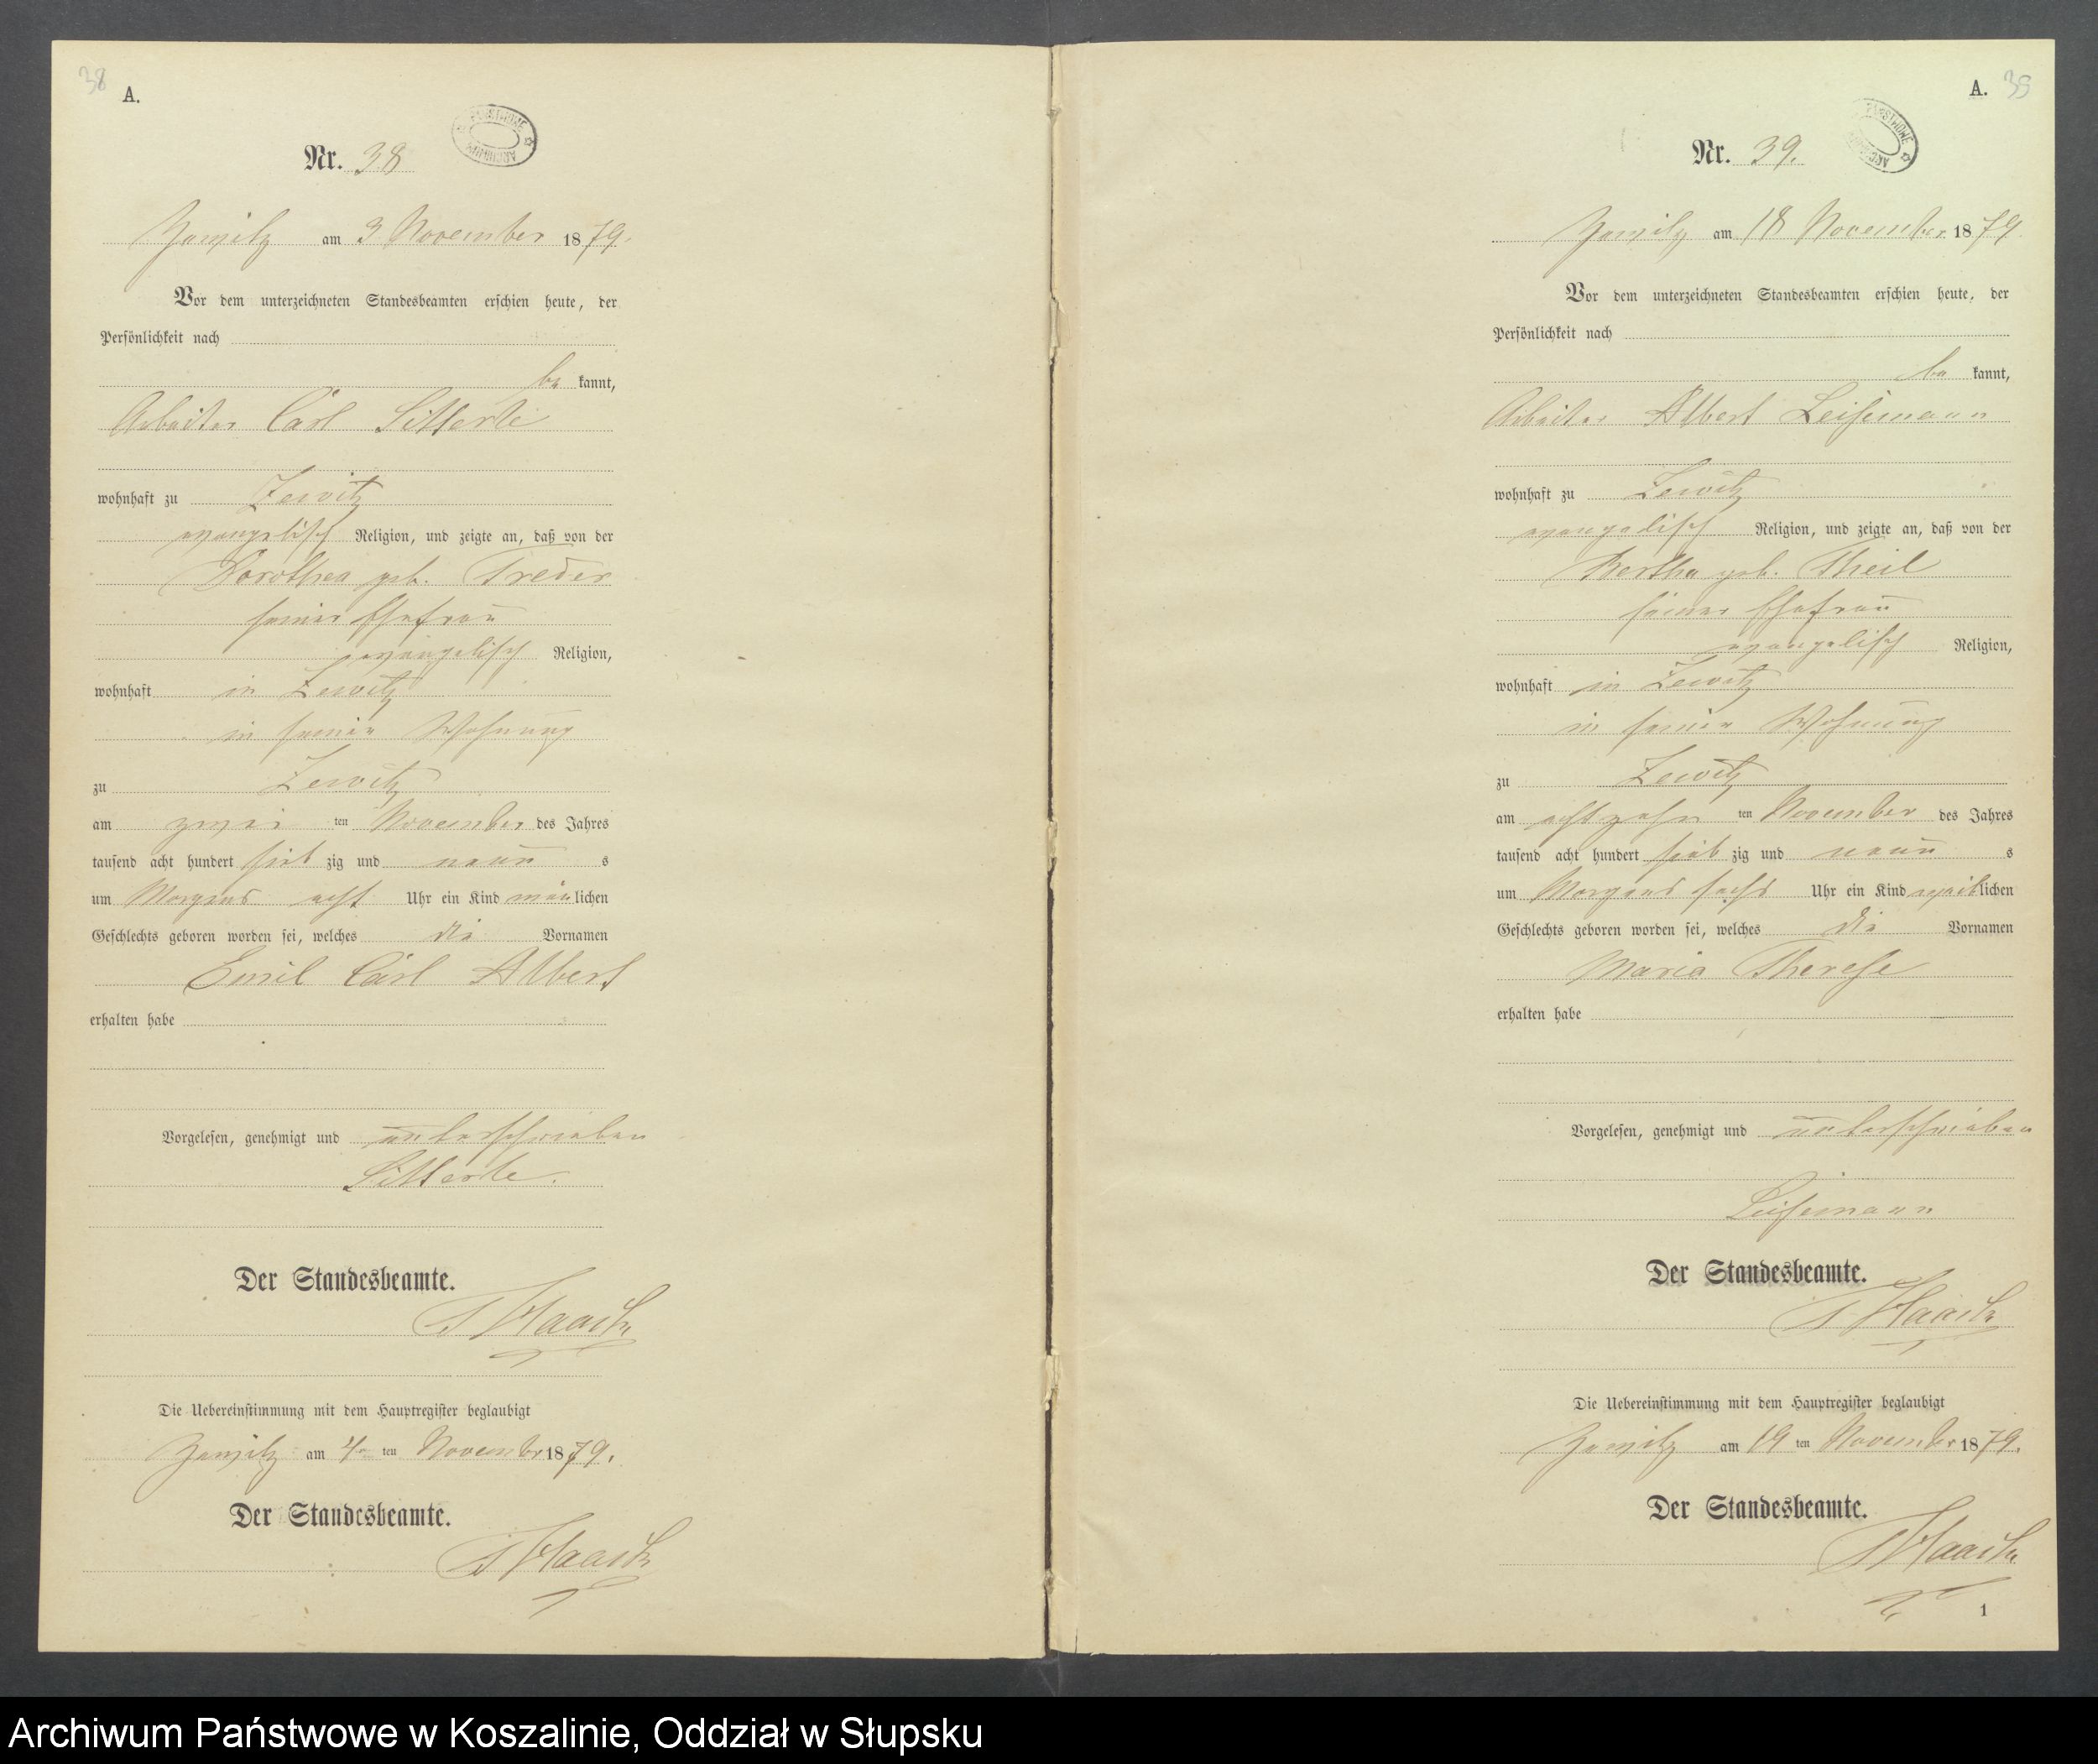 38
A.
Nr. 38
Zewitz am 3 November 1879.
Vor dem unterzeichneten Standesbeamten erschien heute, der
Persönlichkeit nach
be kannt,
Arbeiter Carl
wohnhaft zu Zewitz
evangelisch Religion, und zeigte an, daß von der
Dorothea geb. Treder
seiner Ehefrau
evangelisch Religion,
wohnhaft in Zewitz
in seiner Wohnung
zu Zewitz
am zwei ten November des Jahres
tausend acht hundert sieb zig und neun s
um Morgens acht Uhr ein Kind männlichen
Geschlechts geboren worden sei, welches die Vornamen
Emil Carl Albert
erhalten habe
Vorgelesen, genehmigt und unterschrieben
Der Standesbeamte.
Haack
Die Uebereinstimmung mit dem Hauptregister beglaubigt
Zewitz am 4 ten November 1879.
Der Standesbeamte.
Haack
A. 39
Nr. 39.
Zewitz am 18 November 1879
Vor dem unterzeichneten Standesbeamten erschien heute, der
Persönlichkeit nach
be kannt,
Arbeiter Albert Leisemann
wohnhaft zu Zewitz
evangelisch Religion, und zeigte an, daß von der
Bertha geb. Theil
seiner Ehefrau
evangelisch Religion,
wohnhaft in Zewitz
in seiner Wohnung
zu Zewitz
am achtzehn ten November des Jahres
tausend acht hundert sieb zig und neun s
um Morgens sechs Uhr ein Kind weiblichen
Geschlechts geboren worden sei, welches die Vornamen
Maria Therese
erhalten habe
Vorgelesen, genehmigt und unterschrieben
Leisemann
Der Standesbeamte.
Haack
Die Uebereinstimmung mit dem Hauptregister beglaubigt
Zewitz am 19 ten November 1879.
Der Standesbeamte.
Haack
1
Archiwum Państwowe w Koszalinie, Oddział w Słupsku